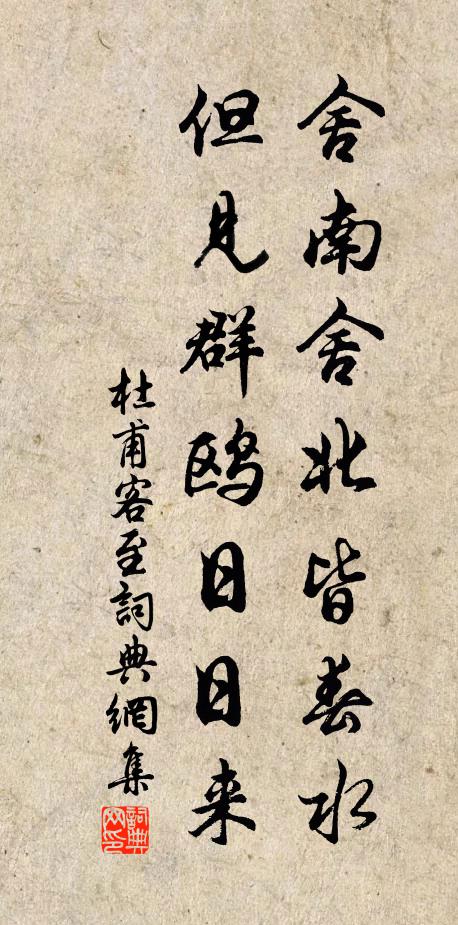 舍南舍北皆春水
但见群鸥日日来
杜甫客至詞典網集
詞典網印